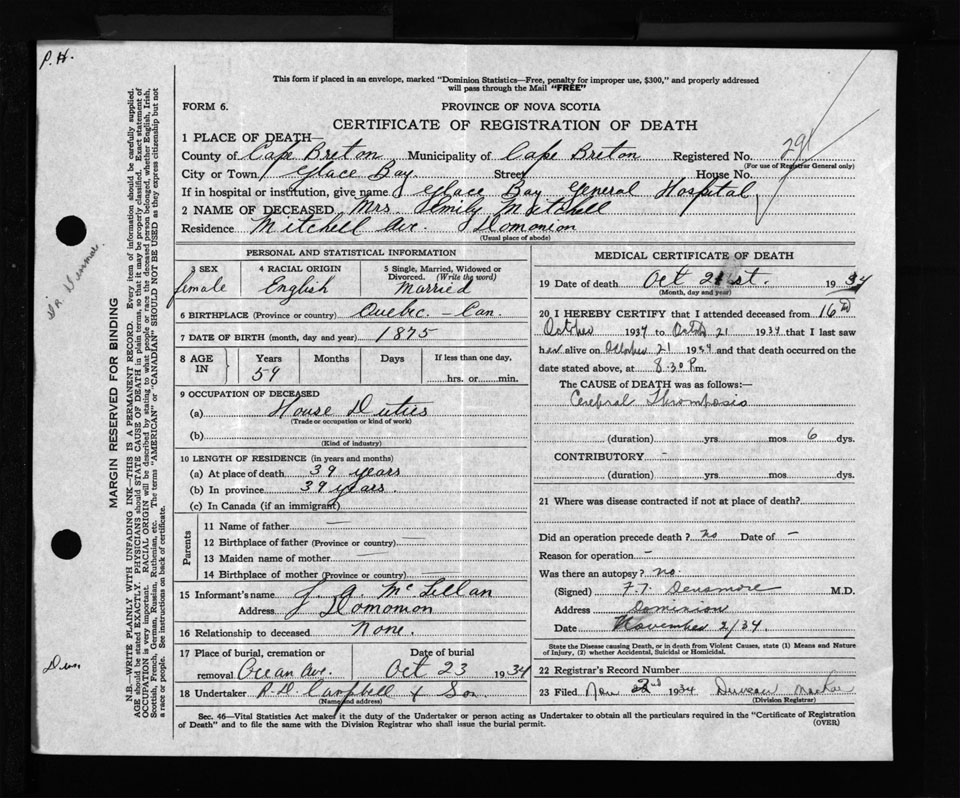 P. H.
This form if placed in an envelope, marked "Dominion Statistics—Free, penalty for improper use, $300," and properly addressed
will pass through the Mail "FREE"
FORM 6.
PROVINCE OF NOVA SCOTIA
CERTIFICATE OF REGISTRATION OF DEATH
1 PLACE OF DEATH—
County of Cape Breton Municipality of Cape Breton Registered No. 291
(For use of Registrar General only)
City or Town Glace Bay Street House No.
If in hospital or institution, give name Glace Bay General Hospital
2 NAME OF DECEASED Mrs Emily Mitchell
Residence Mitchell Av. Domonion
(Usual place of abode)
PERSONAL AND STATISTICAL INFORMATION
3 SEX
female
4 RACIAL ORIGIN
English
5 Single, Married, Widowed or
Divorced. (Write the word)
Married
6 BIRTHPLACE (Province or country) Quebec - Can.
7 DATE OF BIRTH (month, day and year) 1875
8 AGE IN
Years
59
Months
Days
If less than one day,
hrs. or min.
9 OCCUPATION OF DECEASED
(a) House Duties
(Trade or occupation or kind of work)
(b)
(Kind of industry)
10 LENGTH OF RESIDENCE (in years and months)
(a) At place of death 39 years
(b) In province 39 years.
(c) In Canada (if an immigrant)
Parents
11 Name of father —
12 Birthplace of father (Province or country) —
13 Maiden name of mother —
14 Birthplace of mother (Province or country) —
15 Informant's name J. A. McLellan
Address Domonion
16 Relationship to deceased None.
17 Place of burial, cremation or
removal Ocean Ave.
Date of burial
Oct 23 1934
18 Undertaker R. D. Campbell & Son
(Name and address)
MEDICAL CERTIFICATE OF DEATH
19 Date of death Oct 21st. 1934
(Month, day and year)
20 I HEREBY CERTIFY that I attended deceased from 16th
October 1934 to Octob 21 1934 that I last saw
her alive on October 21 1934 and that death occurred on the
date stated above, at 8.30 P.m.
The CAUSE OF DEATH was as follows:—
Cerebral Thrombosis
(duration) yrs. mos. 6 dys.
CONTRIBUTORY -
(duration) yrs. mos. dys.
21 Where was disease contracted if not at place of death?
Did an operation precede death? no Date of -
Reason for operation -
Was there an autopsy? no.
(Signed) F. T. Densmore M.D.
Address Dominion
Date November 2/34.
State the Disease causing Death, or in death from Violent Causes, state (1) Means and Nature
of Injury, (2) whether Accidental, Suicidal or Homicidal.
22 Registrar's Record Number
23 Filed Nov 2nd 1934 Duncan MacRae
(Division Registrar)
Sec. 46—Vital Statistics Act makes it the duty of the Undertaker or person acting as Undertaker to obtain all the particulars required in the "Certificate of Registration
of Death" and to file the same with the Division Registrar who shall issue the burial permit.
(OVER)
MARGIN RESERVED FOR BINDING
N.B.—WRITE PLAINLY WITH UNFADING INK—THIS IS A PERMANENT RECORD. Every item of information should be carefully supplied.
AGE should be stated EXACTLY. PHYSICIANS should STATE CAUSE OF DEATH in plain terms, so that it may be properly classified. Exact statement of
OCCUPATION is very important. RACIAL ORIGIN will be described by stating to what people or race the deceased person belonged, whether English, Irish,
Scottish, French, German, Russian, Ruthenian, etc. The terms "AMERICAN" or "CANADIAN" SHOULD NOT BE USED as they express citizenship but not
a race or people. See instructions on back of certificate.